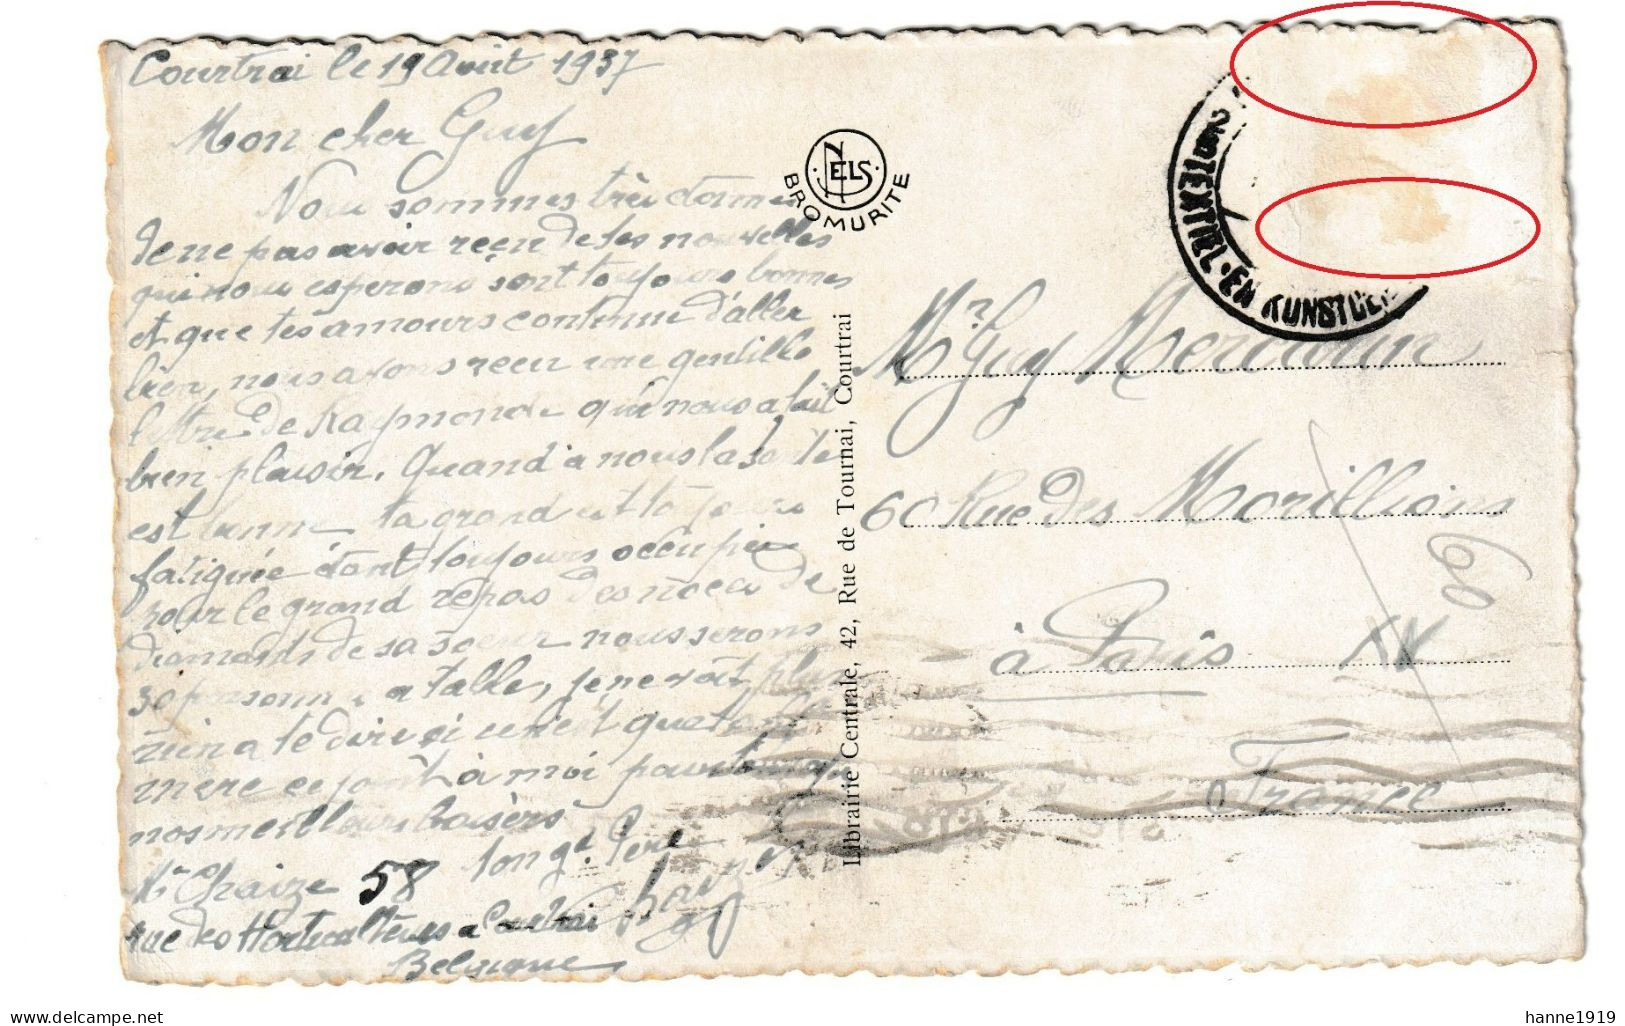 Courtrai le 19 Août 1937
Mon cher Guy
Nous sommes très
de ne pas avoir reçu de tes nouvelles
qui nous esperons sont toujours bonnes
et que tes amours continue d'aller
bien, nous avons reçu une gentille
lettre de Raymonde qui nous a fait
bien plaisir. Quand a nous la santé
est bonne ta grand est toujours
fatiguée étant toujours occupée
pour le grand repas des noces de
diamants de sa soeur nous serons
30 personne a table, je ne voit plus
rien a te dire si ce n'est que ta
mere ce joint à moi pour
nos meilleurs baisers
ton gd Père
Mr Chaize 58
rue des Horticulteurs a Courtrai
Belgique
NELS
BROMURITE
Librairie Centrale, 42, Rue de Tournai, Courtrai
TEXTIEL · EN KUNST
Mr Guy
60 Rue des Morillions
à Paris XV
France
delcampe.net
hanne1919